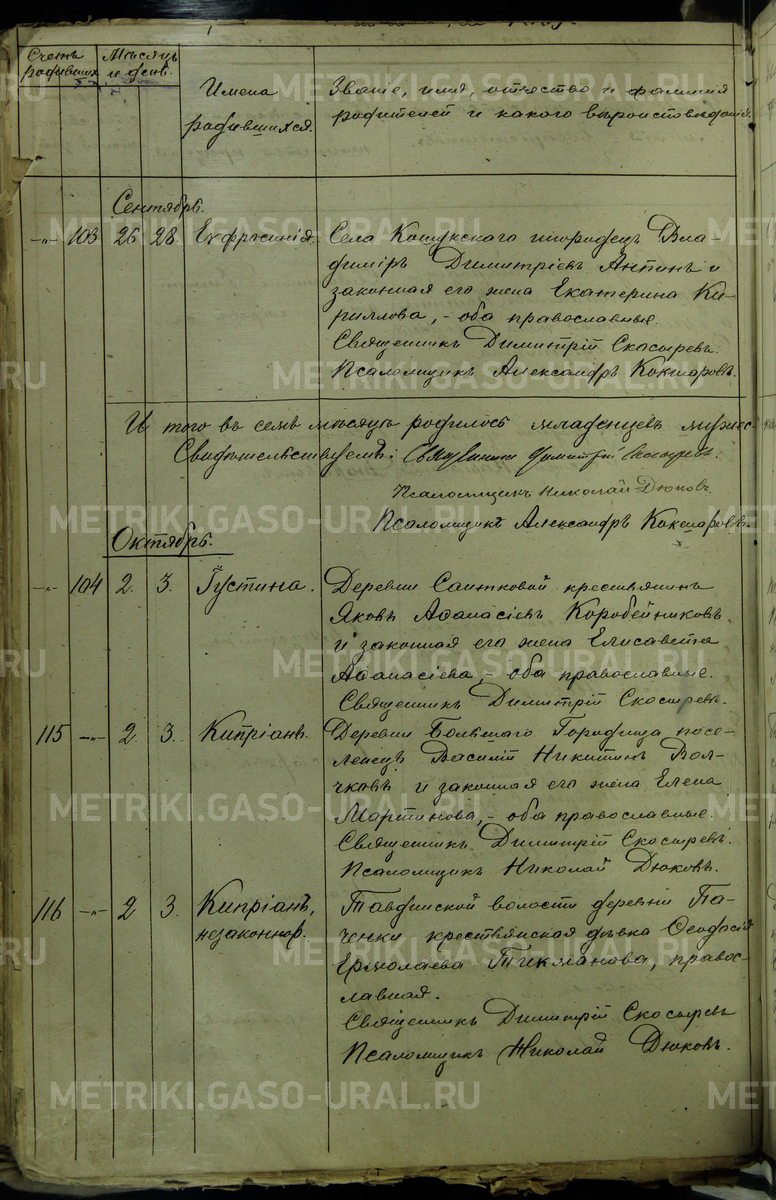 Счетъ родившихся
Мѣсяцъ и день.
Имена родившихся.
Званіе, имя, отчество и фамилія
родителей и какого вѣроисповѣданія.
Сентябрь.
-„- 103 26 28 Евфросинія. Села Кошукского инородецъ Вла-
диміръ Димитріевъ Антинъ и
законная его жена Екатерина Ки-
риллова, - оба православные.
Священникъ Димитрій Скосыревъ.
Псаломщикъ Александръ Кокшаровъ.
И того въ семъ мѣсяцѣ родилось младенцевъ мужес-
Свидѣтельствуемъ: Священникъ Димитрій Скосыревъ.
Псаломщикъ Николай Дюковъ.
Псаломщикъ Александръ Кокшаровъ.
Октябрь.
-„- 104 2. 3. Іустина. Деревни Саитковой крестьянинъ
Яковъ Аѳанасіевъ Коробейниковъ
и законная его жена Елисавета
Аѳанасіева, - оба православные.
Священникъ Димитрій Скосыревъ.
115 -„- 2. 3. Кипріанъ. Деревни Большаго Городища посе-
ленецъ Василій Никитинъ Вол-
чковъ и законная его жена Елена
Мартинова, - оба православные.
Священникъ Димитрій Скосыревъ.
Псаломщикъ Николай Дюковъ.
116 -„- 2 3. Кипріанъ, Тавдинской волости деревни Па-
незаконнор. ченки крестьянская дѣвка Ѳеодосія
Ермолаева Тикманова, правос-
лавная.
Священникъ Димитрій Скосыревъ
Псаломщикъ Николай Дюковъ.
METRIKI.GASO-URAL.RU